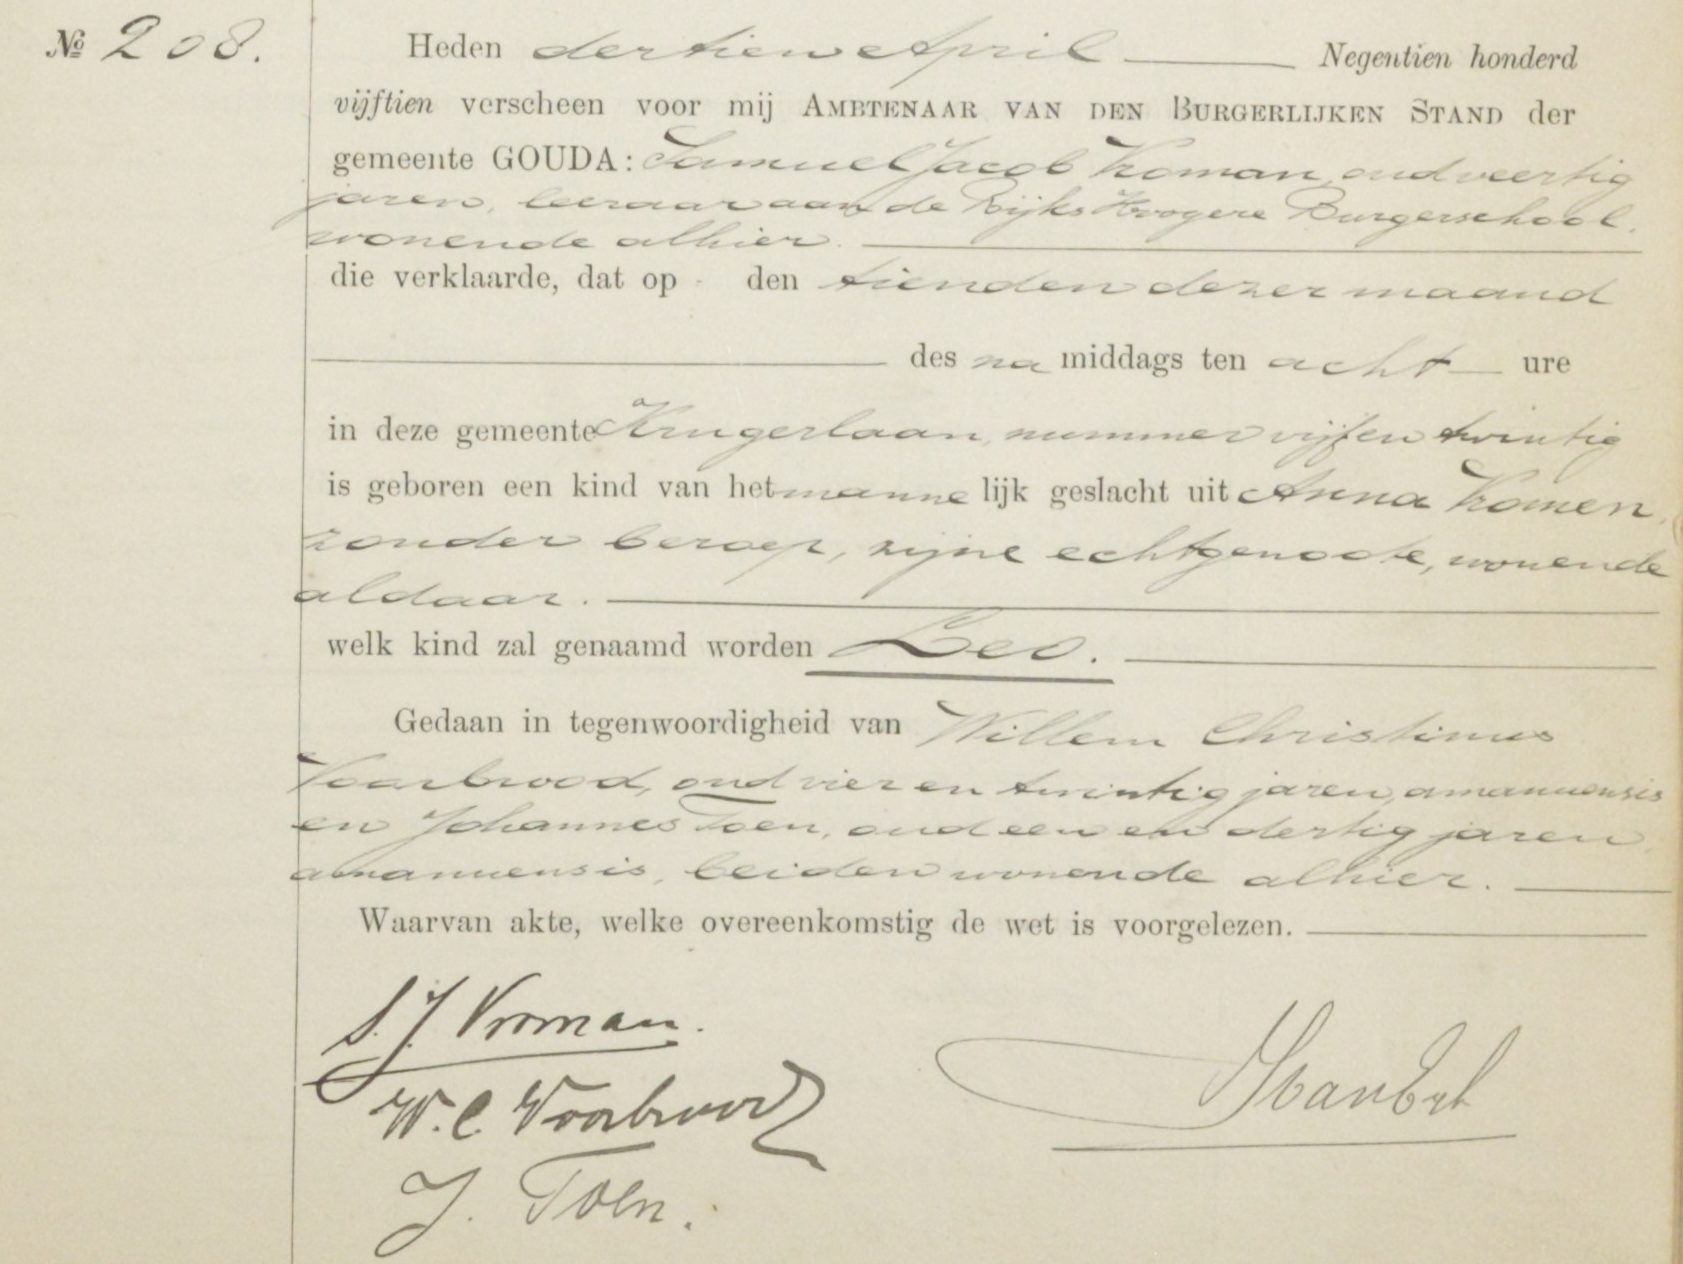 № 208.
Heden dertien April Negentien honderd
vijftien verscheen voor mij AMBTENAAR VAN DEN BURGERLIJKEN STAND der
gemeente GOUDA: Samuel Jacob Vroman, oud veertig
jaren, leeraar aan de Rijks Hoogere Burgerschool,
wonende alhier.
die verklaarde, dat op den tienden dezer maand
des na middags ten acht ure
in deze gemeente Krugerlaan, nummer vijf en twintig
is geboren een kind van het manne lijk geslacht uit Anna Vromen,
zonder beroep, zijne echtgenoote, wonende
aldaar.
welk kind zal genaamd worden Leo.
Gedaan in tegenwoordigheid van Willem Christinus
Voorbrood, oud vier en twintig jaren, amanuensis
en Johannes Toen, oud een en dertig jaren,
amanuensis, beiden wonende alhier.
Waarvan akte, welke overeenkomstig de wet is voorgelezen.
S. J. Vroman.
W. C. Voorbrood
J. Toen.